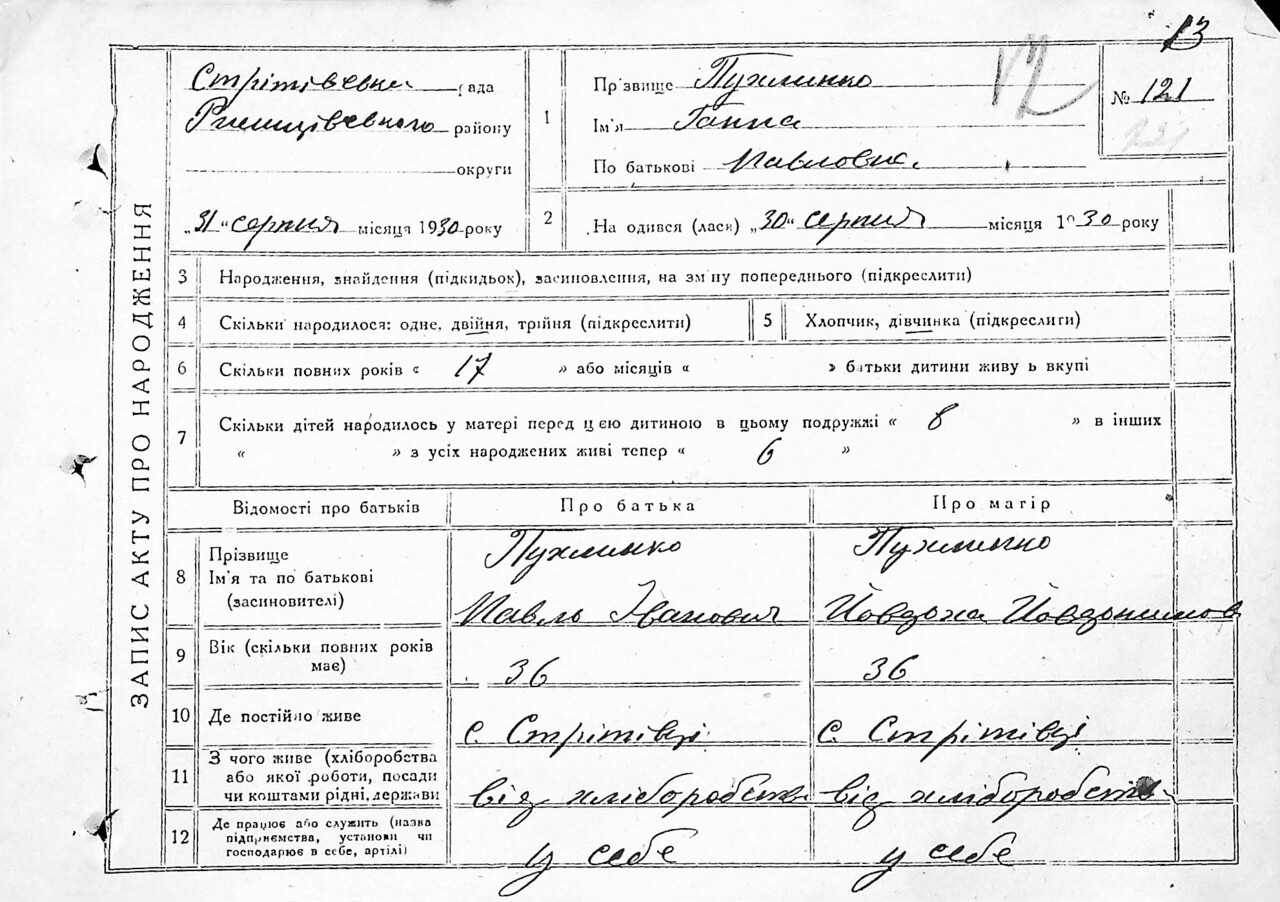 13
ЗАПИС АКТУ ПРО НАРОДЖЕННЯ
Стрітівська рада
Ржищівського району
округи
„31" серпня місяця 1930 року
1
Прізвище Пухлинко
Ім'я Ганна
По батькові Павловна
№ 121
2
На одився (лася) „30" серпня місяця 1930 року
3 Народження, знайдення (підкидьок), засиновлення, на зміну попереднього (підкреслити)
4 Скільки народилося: одне, двійня, трійня (підкреслити)
5 Хлопчик, дівчинка (підкреслити)
6 Скільки повних років « 17 » або місяців « » батьки дитини живуть вкупі
7 Скільки дітей народилось у матері перед цією дитиною в цьому подружжі « 8 » в інших
« » з усіх народжених живі тепер « 6 »
Відомості про батьків Про батька Про матір
8 Прізвище
Ім'я та по батькові
(засиновителі)
Пухлинко
Павло Іванович
Пухлинко
Йовдоха Йовдокимов
9 Вік (скільки повних років
має)
36 36
10 Де постійно живе с. Стрітівці с. Стрітівці
11 З чого живе (хліборобства
або якої роботи, посади
чи коштами рідні, держави
від хліборобств від хліборобств
12 Де працює або служить (назва
підприємства, установи чи
господарює в себе, артілі)
у себе у себе